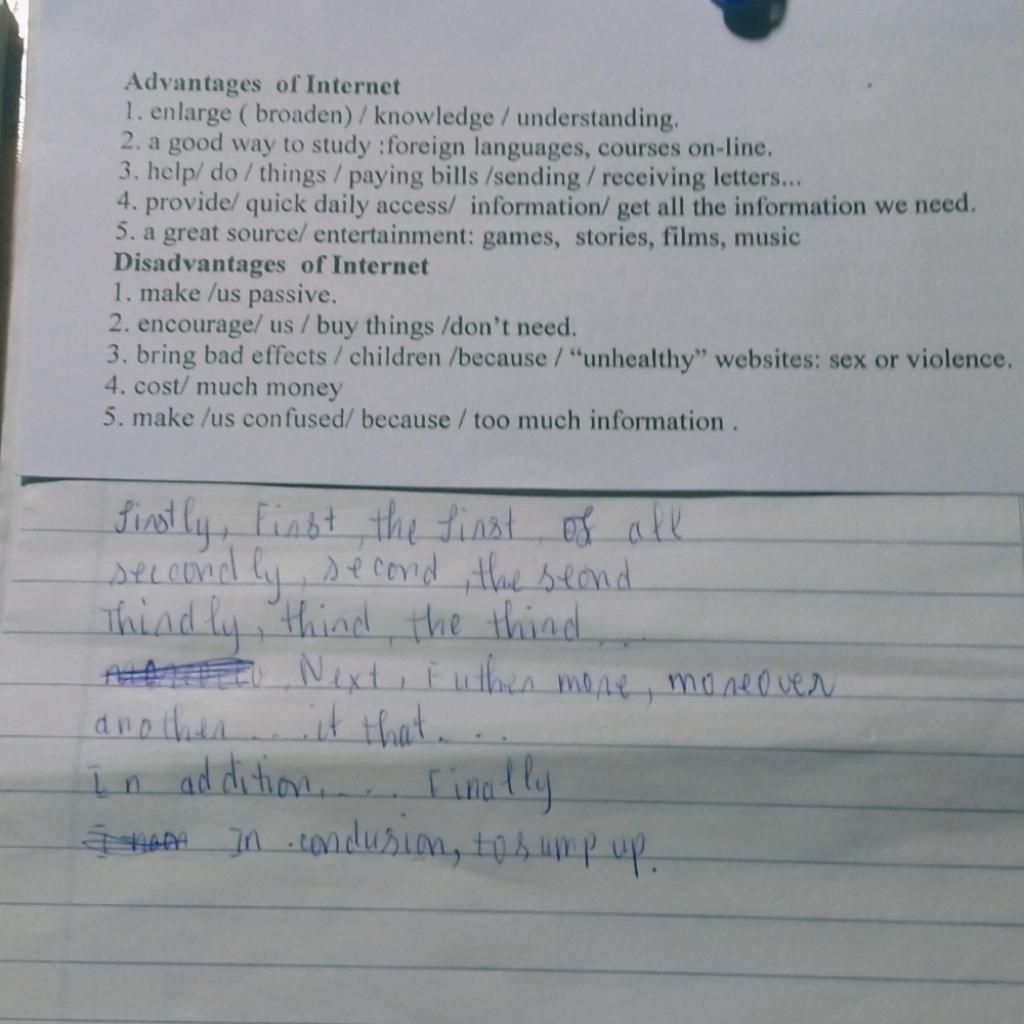 Advantages of Internet
1. enlarge ( broaden) / knowledge / understanding.
2. a good way to study :foreign languages, courses on-line.
3. help/ do / things / paying bills /sending / receiving letters...
4. provide/ quick daily access/ information/ get all the information we need.
5. a great source/ entertainment: games, stories, films, music
Disadvantages of Internet
1. make /us passive.
2. encourage/ us / buy things /don't need.
3. bring bad effects / children /because / “unhealthy” websites: sex or violence.
4. cost/ much money
5. make /us confused/ because / too much information .
firstly, First, the first of all
seccondly, second, the seond
Thirdly, third, the third ...
Next, Futher more, moreover
another... it that....
In addition,... Finally
In conclusion, to sump up.